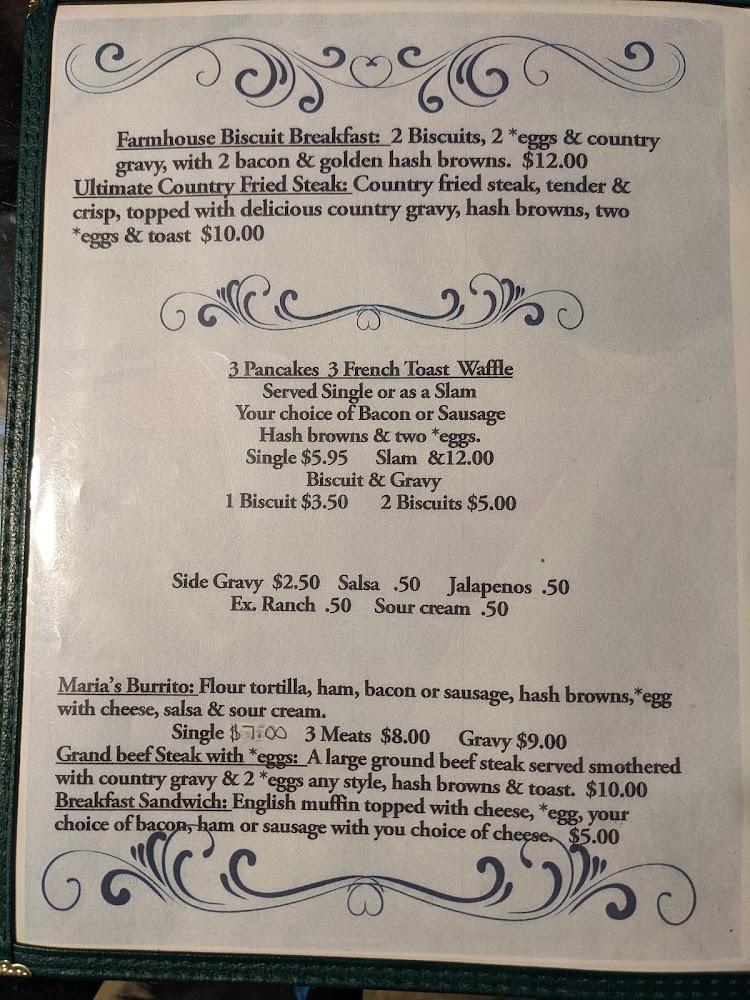 Farmhouse Biscuit Breakfast: 2 Biscuits, 2 *eggs & country
gravy, with 2 bacon & golden hash browns. $12.00
Ultimate Country Fried Steak: Country fried steak, tender &
crisp, topped with delicious country gravy, hash browns, two
*eggs & toast $10.00
3 Pancakes 3 French Toast Waffle
Served Single or as a Slam
Your choice of Bacon or Sausage
Hash browns & two *eggs.
Single $5.95 Slam &12.00
Biscuit & Gravy
1 Biscuit $3.50 2 Biscuits $5.00
Side Gravy $2.50 Salsa .50 Jalapenos .50
Ex. Ranch .50 Sour cream .50
Maria's Burrito: Flour tortilla, ham, bacon or sausage, hash browns,*egg
with cheese, salsa & sour cream.
Single $7.00 3 Meats $8.00 Gravy $9.00
Grand beef Steak with *eggs: A large ground beef steak served smothered
with country gravy & 2 *eggs any style, hash browns & toast. $10.00
Breakfast Sandwich: English muffin topped with cheese, *egg, your
choice of bacon, ham or sausage with you choice of cheese. $5.00